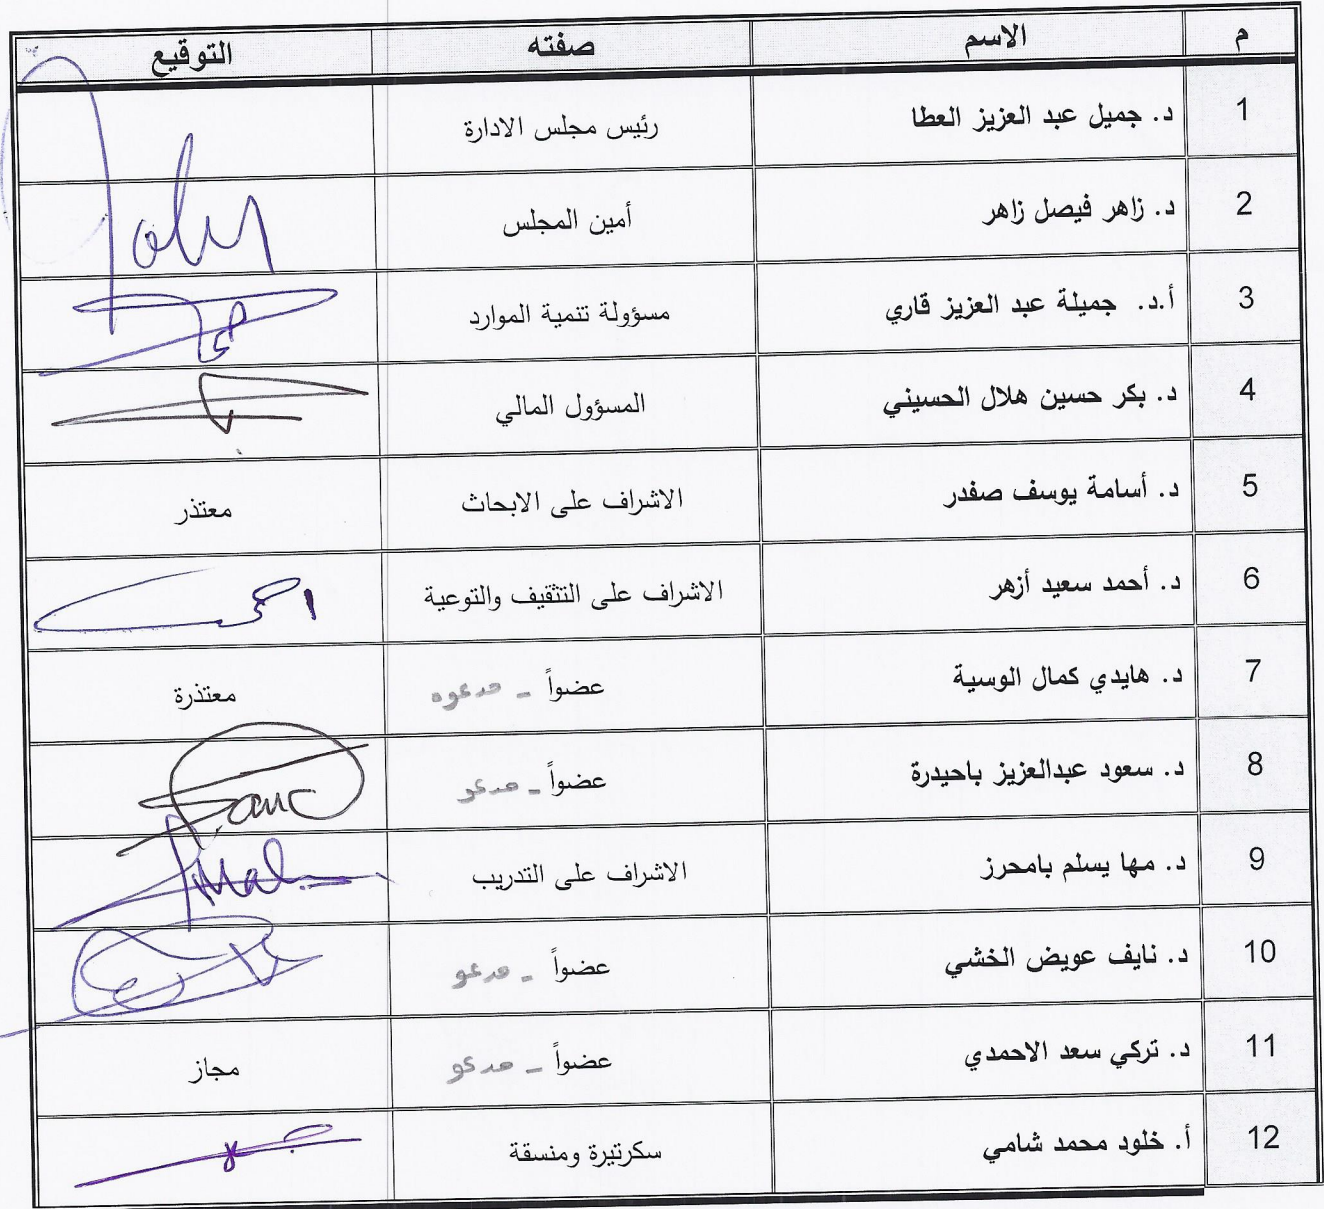 م الاسم صفته التوقيع
1 د. جميل عبد العزيز العطا رئيس مجلس الادارة
2 د. زاهر فيصل زاهر أمين المجلس
3 أ.د. جميلة عبد العزيز قاري مسؤولة تنمية الموارد
4 د. بكر حسين هلال الحسيني المسؤول المالي
5 د. أسامة يوسف صفدر الاشراف على الابحاث معتذر
6 د. أحمد سعيد أزهر الاشراف على التثقيف والتوعية
7 د. هايدي كمال الوسية عضواً - مدعوه معتذرة
8 د. سعود عبدالعزيز باحيدرة عضواً - مدعو
9 د. مها يسلم بامحرز الاشراف على التدريب
10 د. نايف عويض الخشي عضواً - مدعو
11 د. تركي سعد الاحمدي عضواً - مدعو مجاز
12 أ. خلود محمد شامي سكرتيرة ومنسقة